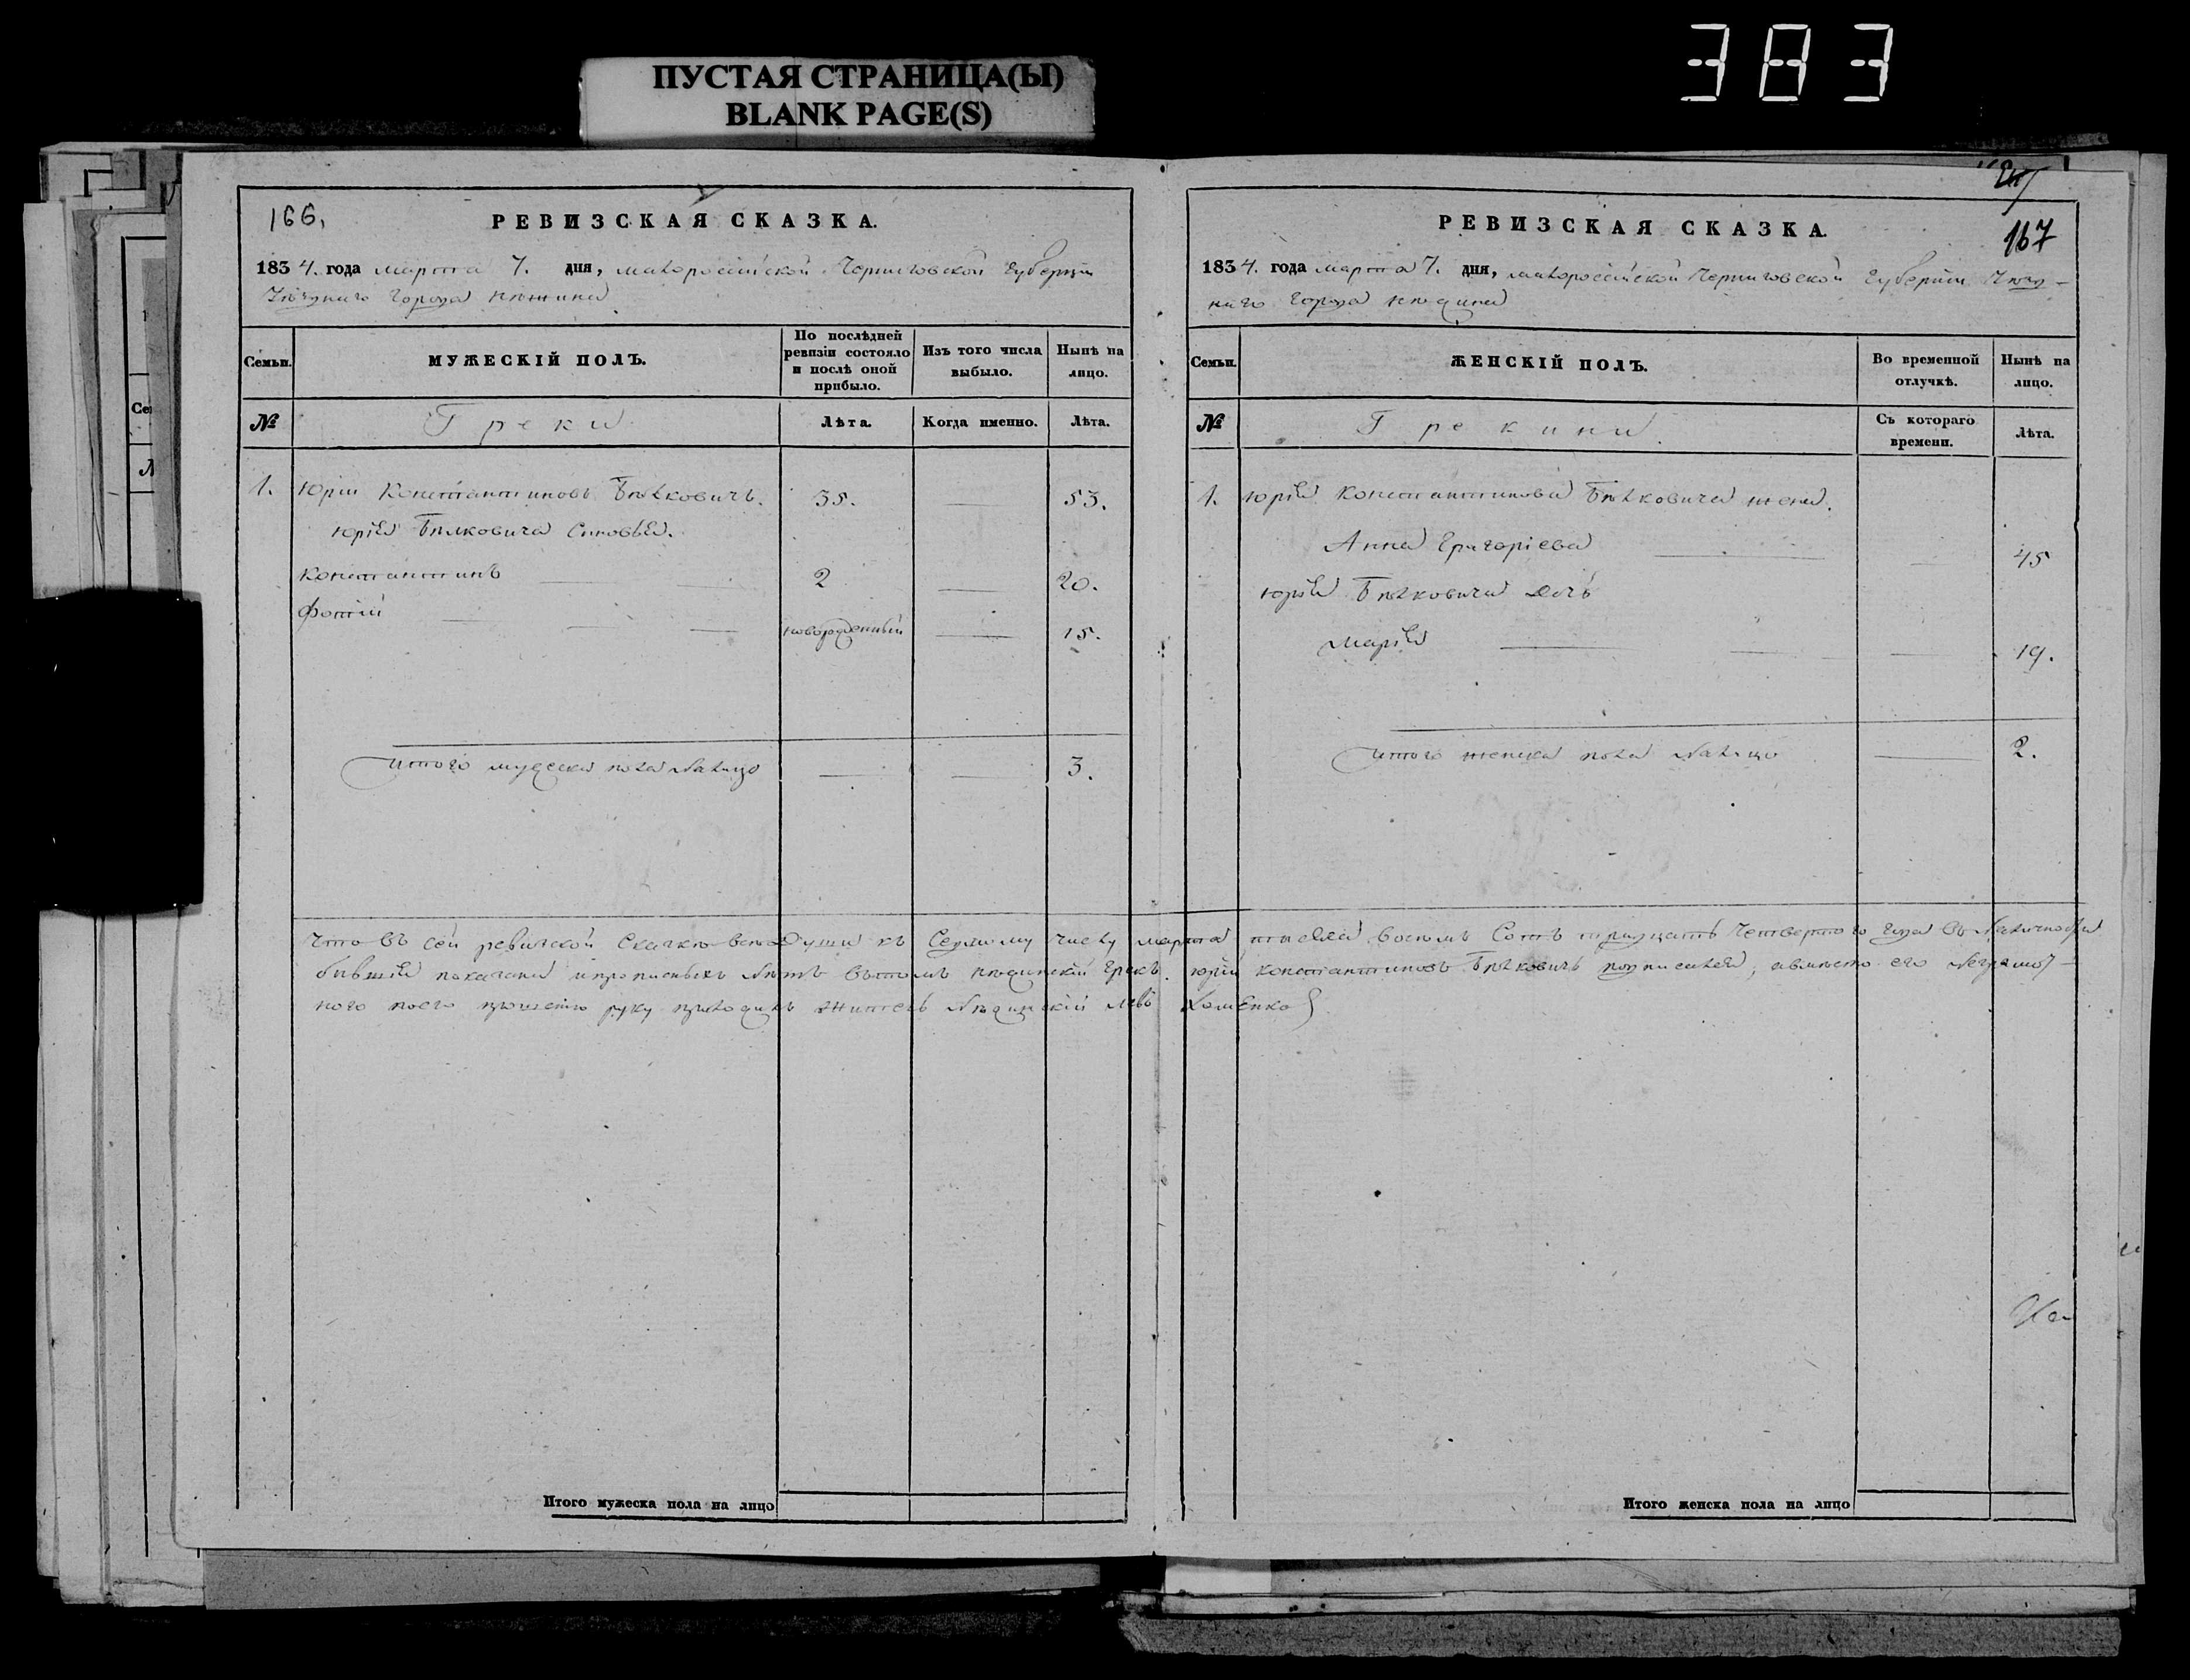 ПУСТАЯ СТРАНИЦА(Ы)
BLANK PAGE(S)
383
166.
РЕВИЗСКАЯ СКАЗКА.
1834. года марта 7. дня, малороссійской Черниговской губерніи
уѣзднаго города Нѣжина
Семьи.
МУЖЕСКІЙ ПОЛЪ.
По послѣдней ревизіи состояло и послѣ оной прибыло.
Изъ того числа выбыло.
Нынѣ на лицо.
№
Греки
Лѣта.
Когда именно.
Лѣта.
1. Юрій Константиновъ Бѣлковичъ. 35. 53.
Юрія Бѣлковича Сыновья.
Константинъ 2 20.
Фотій новорожденный 15.
Итого мужеска пола налицо 3.
167
РЕВИЗСКАЯ СКАЗКА.
1834. года марта 7. дня, малороссійской Черниговской губерніи уѣзд-
наго города Нѣжина
Семьи.
ЖЕНСКІЙ ПОЛЪ.
Во временной отлучкѣ.
Нынѣ на лицо.
№
Грекини.
Съ котораго времени.
Лѣта.
1. Юрія Константинова Бѣлковича жена.
Анна Григоріева 45
Юрія Бѣлковича дочь
Марія 19.
Итого женска пола налицо 2.
Что въ сей ревизской Сказкѣ всѣ души къ Седьмому числу марта тысяча восемь Сотъ тридцать Четвертого года въ наличности
бывшія показаны и прописныхъ нѣтъ въ томъ нѣжинскій грекъ Юрій Константиновъ Бѣлковичъ подписался, а вмѣсто его неграмот-
ного по его прошенію руку приложилъ житель нѣжинскій Хоменко
Итого мужеска пола на лицо
Итого женска пола на лицо